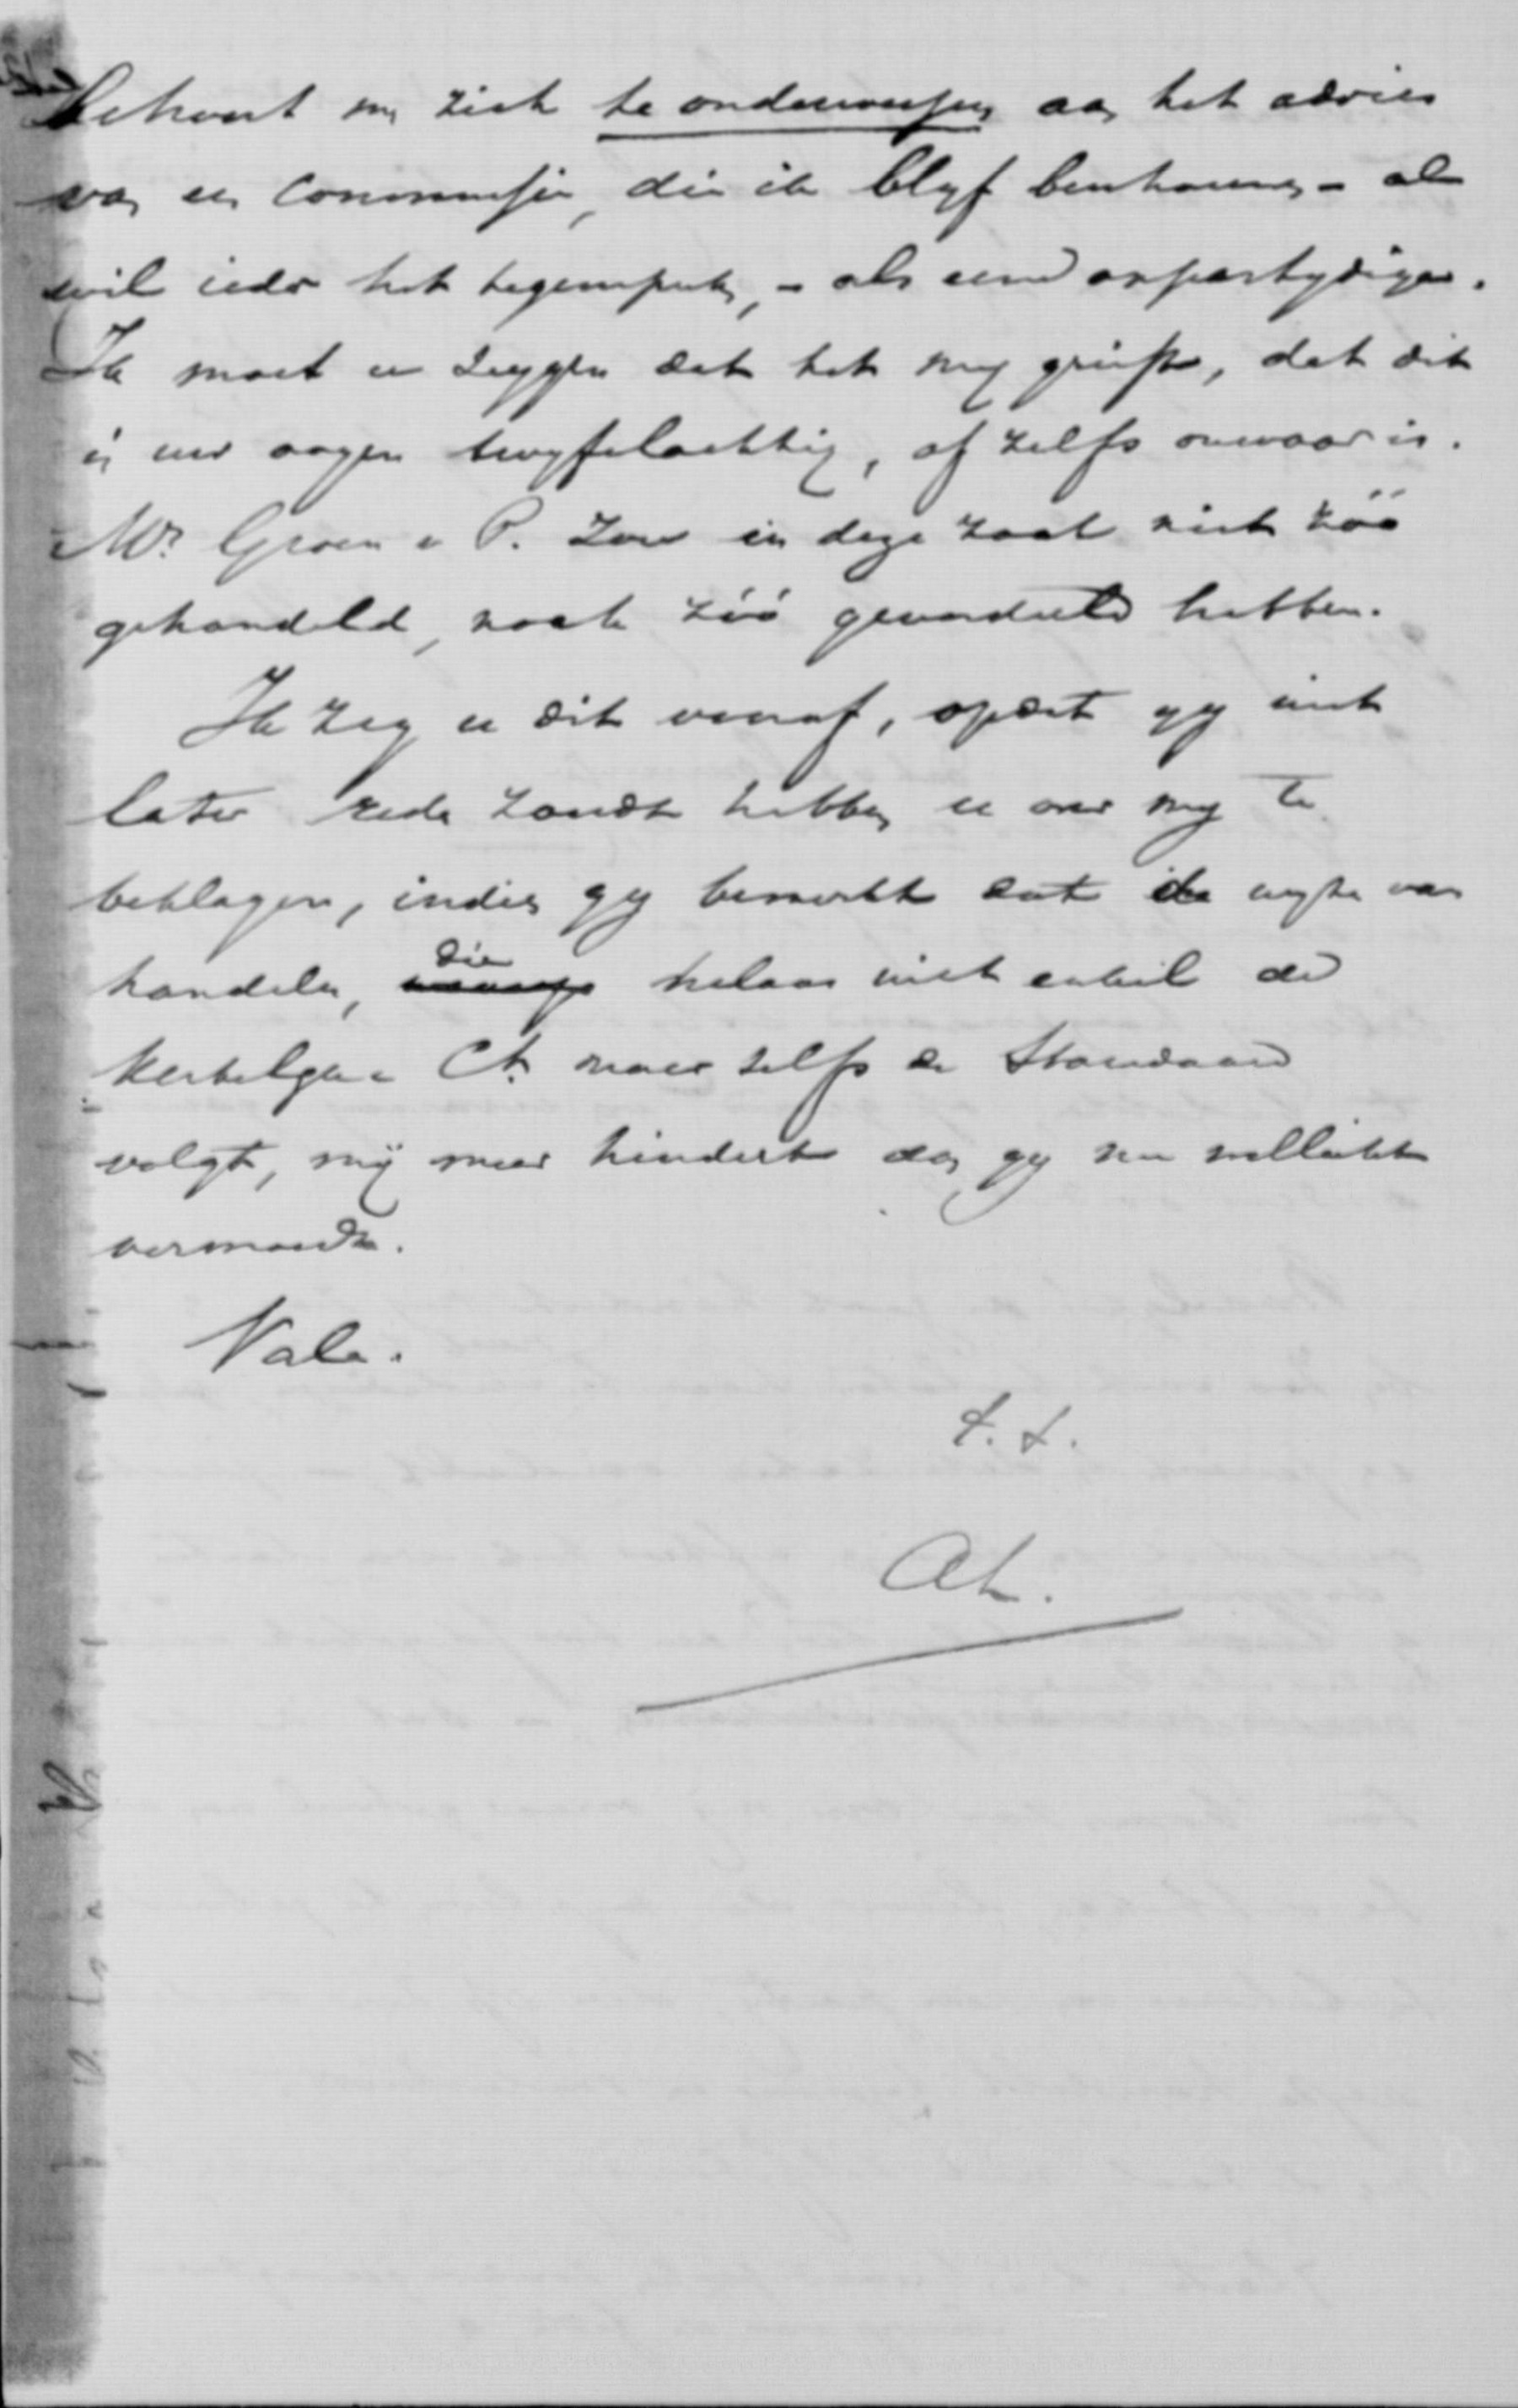 behoort om zich te onderwerpen aan het advies
van een Commissie, die ik blyf beschouwen - al
wil ieder het tegenspreken, - als eene onpartydige.
Ik moet u zeggen dat het my grieft, dat dit
in uw oogen twyfelachtig, of zelfs onwaar is.
Mr Groen v P. zou in deze zaak niet zóó
gehandeld, noch zóó geoordeeld hebben.
Ik zeg u dit vooraf, opdat gy niet
later rede zoudt hebben u over my te
beklagen, indien gy bemerkt dat de wyze van
handelen, die helaas niet enkel de
Kerkelyke Ct. maar zelfs de Standaard
volgt, my meer hindert dan gy nu wellicht
vermoedt.
Vale.
t. t.